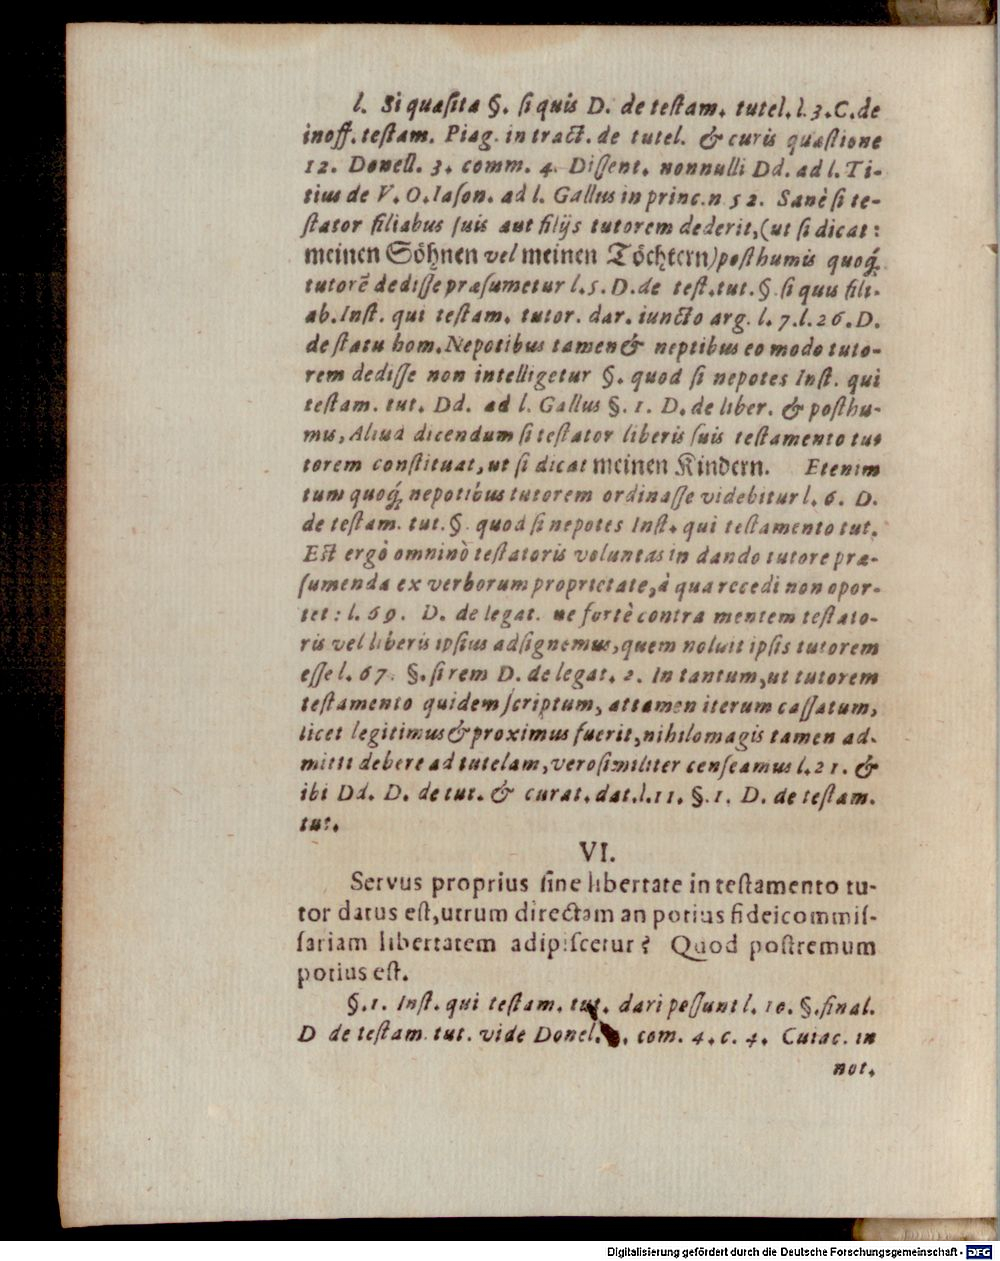 l. Si quæsita §. si quis D. de testam. tutel. l. 3. C. de
inoff. testam. Piag. in tract. de tutel. & curis quæstione
12. Donell. 3. comm. 4. Dissent. nonnulli Dd. ad l. Ti-
tius de V. O. Iason. ad l. Gallus in princ. n 52. Sanè si te-
stator filiabus suis aut filijs tutorem dederit, (ut si dicat:
meinen Söhnen vel meinen Töchtern) posthumis quoq́;
tutorẽ dedisse præsumetur l. 5. D. de test. tut. §. si quis fili-
ab. Inst. qui testam. tutor. dar. iuncto arg. l. 7. l. 26. D.
de statu hom. Nepotibus tamen & neptibus eo modo tuto-
rem dedisse non intelligetur §. quod si nepotes Inst. qui
testam. tut. Dd. ad l. Gallus §. 1. D. de liber. & posthu-
mis, Aliud dicendum si testator liberis suis testamento tu-
torem constituat, ut si dicat meinen Kindern. Etenim
tum quoq́; nepotibus tutorem ordinasse videbitur l. 6. D.
de testam. tut. §. quod si nepotes Inst. qui testamento tut.
Est ergò omninò testatoris voluntas in dando tutore præ-
sumenda ex verborum proprietate, à qua recedi non opor-
tet: l. 69. D. de legat. ne fortè contra mentem testato-
ris vel liberis ipsius adsignemus, quem noluit ipsis tutorem
esse l. 67. §. si rem D. de legat. 2. In tantum, ut tutorem
testamento quidem scriptum, attamen iterum cassatum,
licet legitimus & proximus fuerit, nihilomagis tamen ad-
mitti debere ad tutelam, verosimiliter censeamus l. 21. &
ibi Dd. D. de tut. & curat. dat. l. 11. §. 1. D. de testam.
tut.
VI.
Servus proprius sine libertate in testamento tu-
tor datus est, utrum directam an potius fideicommis-
sariam libertatem adipiscetur? Quod postremum
potius est.
§. 1. Inst. qui testam. tut. dari possunt l. 10. §. final.
D de testam. tut. vide Donel. com. 4. c. 4. Cuiac. in
not.
Digitalisierung gefördert durch die Deutsche Forschungsgemeinschaft - DFG